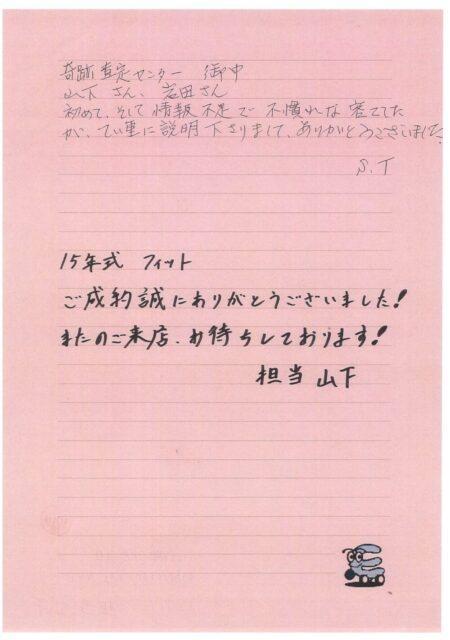 奇跡査定センター 御中
山下さん、岩田さん
初めて、そして情報不足で不慣れな客でした
が、てい重に説明下さりまして、ありがとうございました。
S.T
15年式 フィット
ご成約誠にありがとうございました!
またのご来店、お待ちしております!
担当 山下